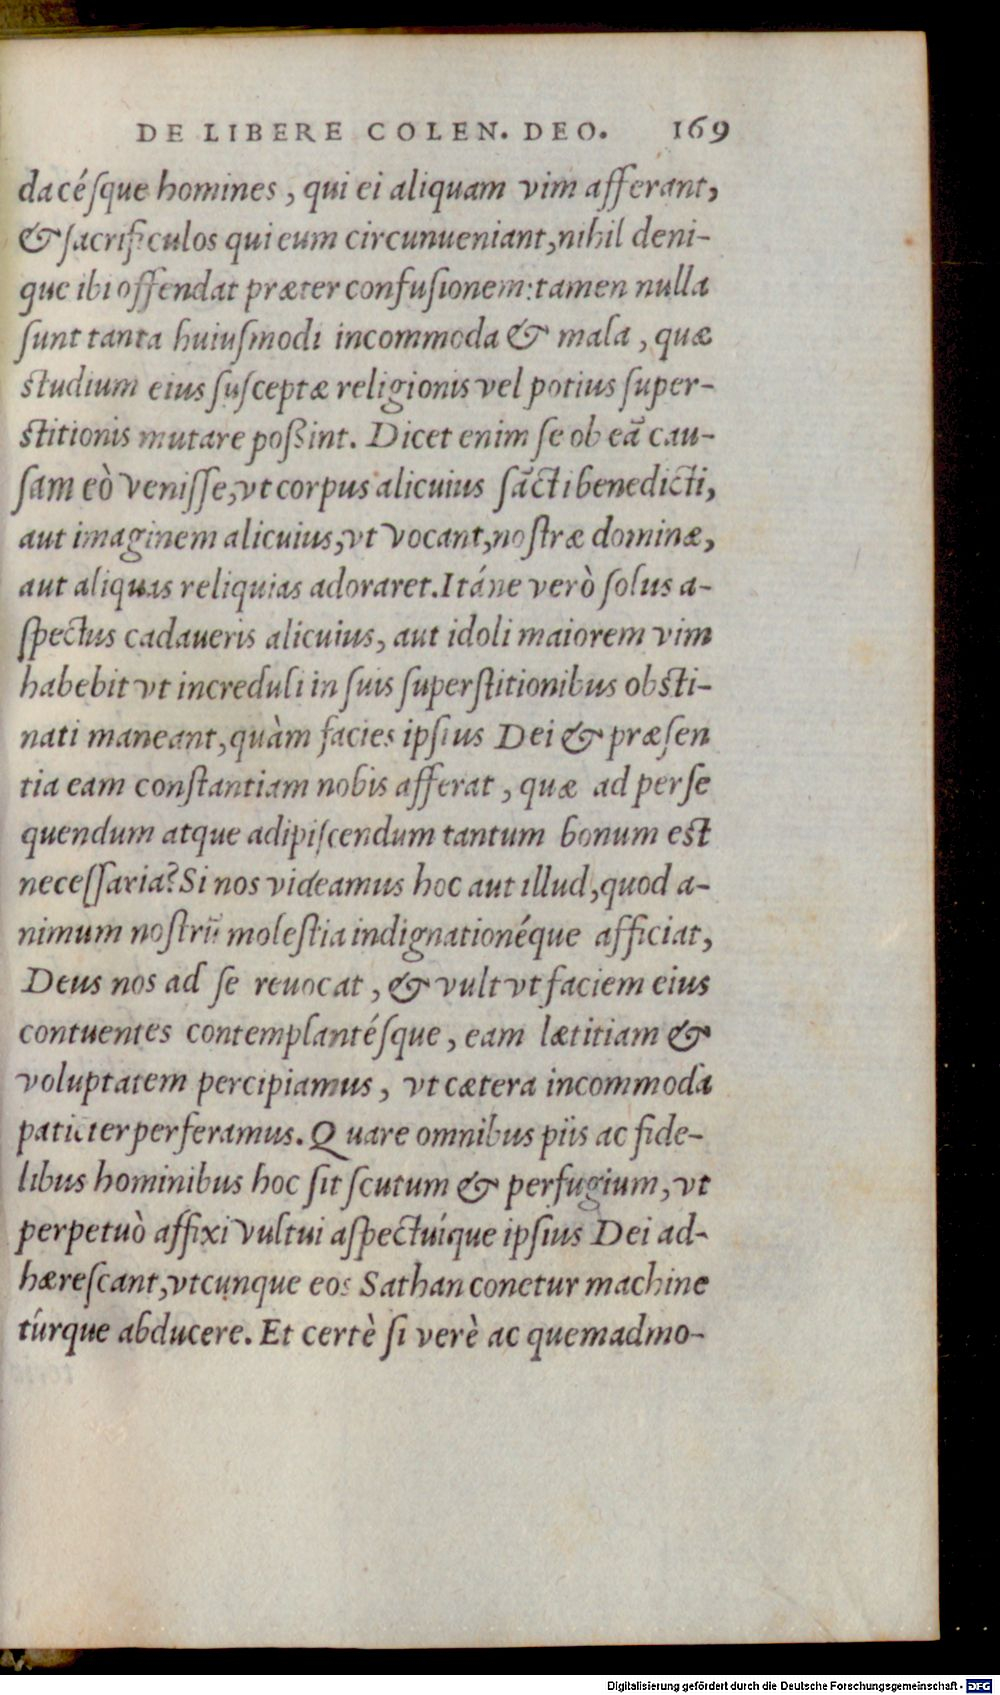 DE LIBERE COLEN. DEO. 169
dacésque homines, qui ei aliquam vim afferant,
& sacrificulos qui eum circunueniant, nihil deni-
que ibi offendat præter confusionem: tamen nulla
sunt tanta huiusmodi incommoda & mala, quæ
studium eius susceptæ religionis vel potius super-
stitionis mutare poßint. Dicet enim se ob eã cau-
sam eò venisse, vt corpus alicuius sãcti benedicti,
aut imaginem alicuius, vt vocant, nostræ dominæ,
aut aliquas reliquias adoraret. Itáne verò solus a-
spectus cadaueris alicuius, aut idoli maiorem vim
habebit vt increduli in suis superstitionibus obsti-
nati maneant, quàm facies ipsius Dei & præsen
tia eam constantiam nobis afferat, quæ ad perse
quendum atque adipiscendum tantum bonum est
necessaria? Si nos videamus hoc aut illud, quod a-
nimum nostrũ molestia indignationéque afficiat,
Deus nos ad se reuocat, & vult vt faciem eius
contuentes contemplantésque, eam lætitiam &
voluptatem percipiamus, vt cætera incommoda
patiẽter perferamus. Quare omnibus piis ac fide-
libus hominibus hoc sit scutum & perfugium, vt
perpetuò affixi vultui aspectuíque ipsius Dei ad-
hærescant, vtcunque eos Sathan conetur machine
túrque abducere. Et certè si verè ac quemadmo-
Digitalisierung gefördert durch die Deutsche Forschungsgemeinschaft - DFG